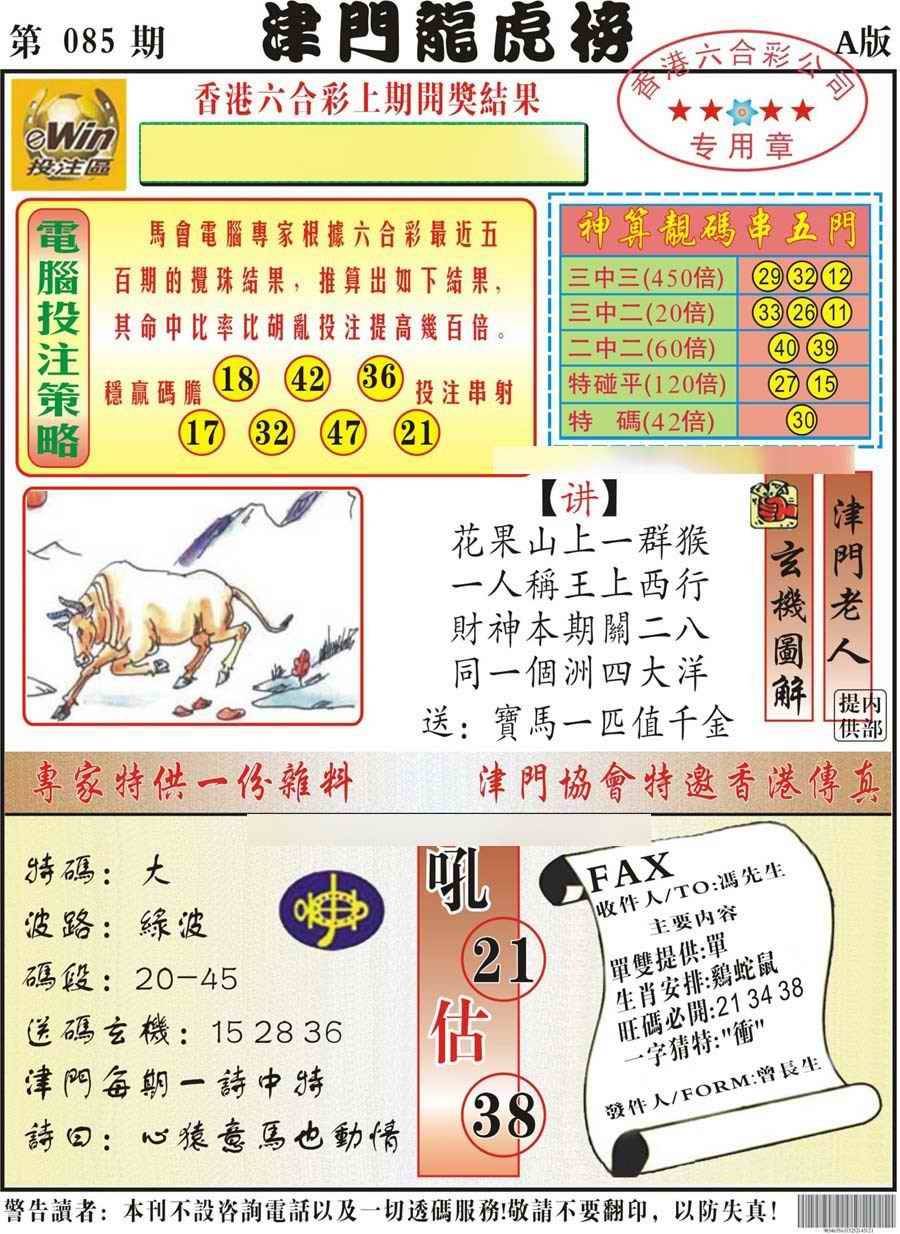 第 085 期
津門龍虎榜
A版
香港六合彩公司
专用章
eWin
投注區
香港六合彩上期開獎結果
電腦投注策略
馬會電腦專家根據六合彩最近五
百期的攪珠結果，推算出如下結果，
其命中比率比胡亂投注提高幾百倍。
穩贏碼膽 18 42 36 投注串射
17 32 47 21
神算靚碼串五門
三中三(450倍) 29 32 12
三中二(20倍) 33 26 11
二中二(60倍) 40 39
特碰平(120倍) 27 15
特 碼(42倍) 30
【讲】
花果山上一群猴
一人稱王上西行
財神本期關二八
同一個洲四大洋
送：寶馬一匹值千金
玄機圖解
津門老人
提供
内部
專家特供一份雜料
津門協會特邀香港傳真
特碼：大
波路：綠波
碼段：20-45
送碼玄機：15 28 36
津門每期一詩中特
詩曰：心猿意馬也動情
吼
21
估
38
FAX
收件人/TO:馮先生
主要内容
單雙提供:單
生肖安排:鷄蛇鼠
旺碼必開:21 34 38
一字猜特:"衝"
發件人/FORM:曾長生
警告讀者：本刊不設咨詢電話以及一切透碼服務!敬請不要翻印，以防失真!